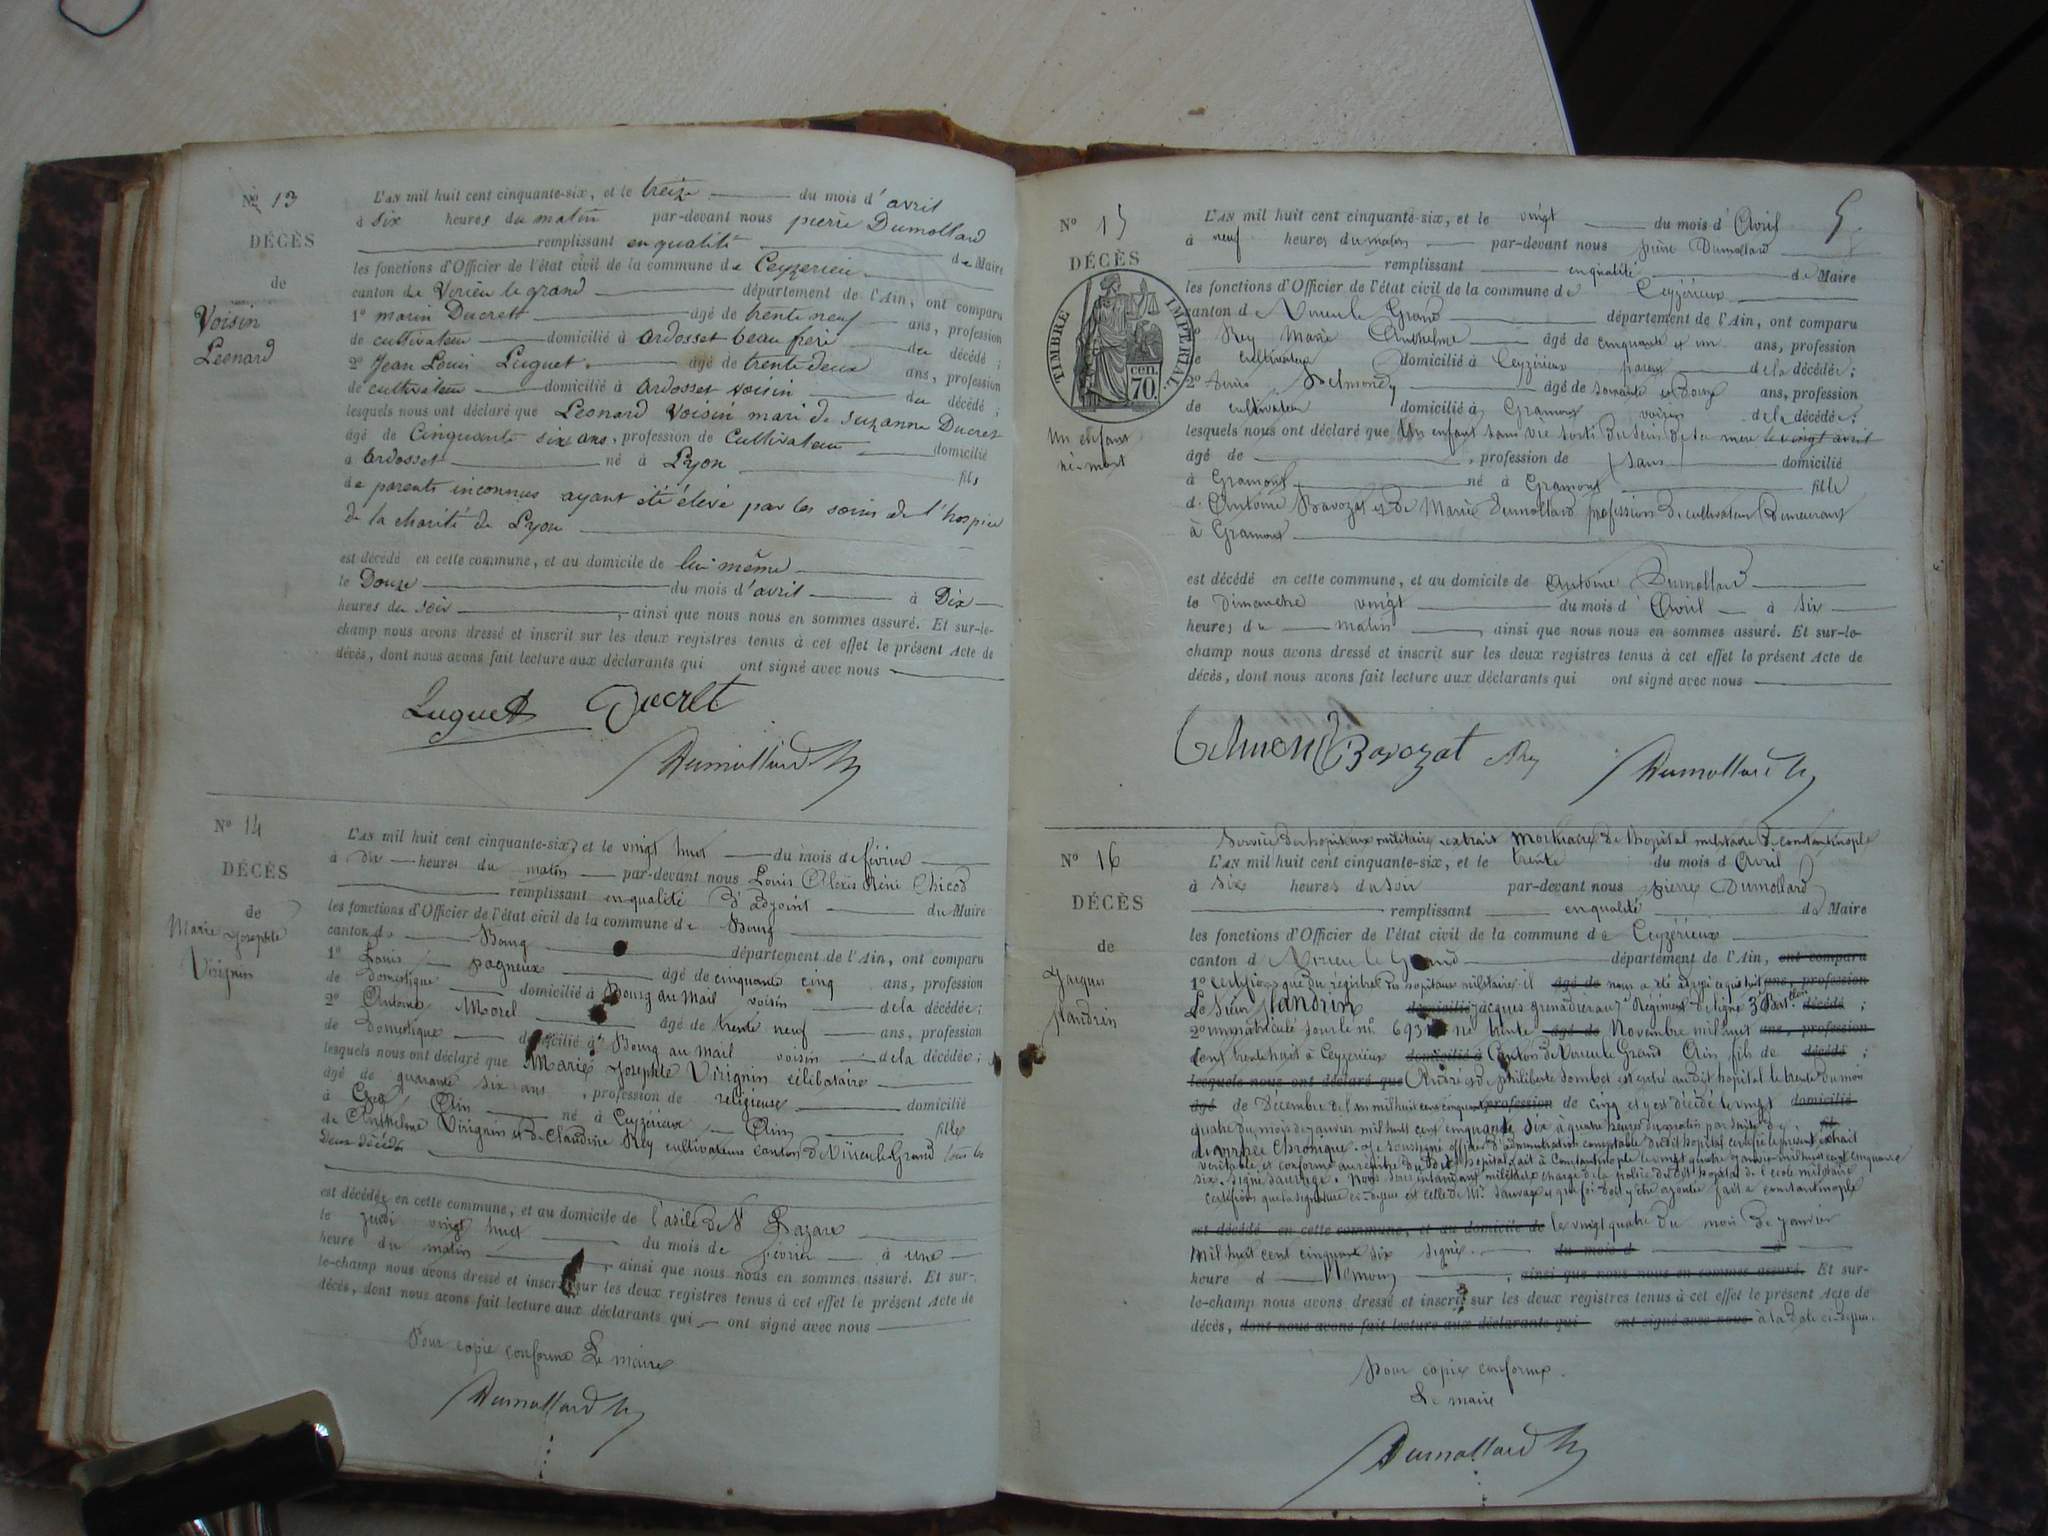 No 13
DÉCÈS
de
Voisin
Léonard
L'AN mil huit cent cinquante-six, et le treize du mois d'avril
à six heures du matin par-devant nous pierre Dumollard
remplissant en qualité de Maire
les fonctions d'Officier de l'état civil de la commune de Ceyzerieu
canton de Virieu le grand département de l'Ain, ont comparu
1o marin Ducret âgé de trente neuf ans, profession
de cultivateur domicilié à Ardosset beau frère du décédé;
2o Jean Louis Luguet âgé de trente deux ans, profession
de cultivateur domicilié à Ardosset voisin du décédé;
lesquels nous ont déclaré que Léonard Voisin mari de Suzanne Ducret
âgé de Cinquante six ans, profession de Cultivateur domicilié
à Ardosset né à Lyon fils
de parents inconnus ayant été élevé par les soins de l'hospice
de la charité de Lyon
est décédé en cette commune, et au domicile de lui même
le Douze du mois d'avril à Dix
heures du soir, ainsi que nous nous en sommes assuré. Et sur-le-
champ nous avons dressé et inscrit sur les deux registres tenus à cet effet le présent Acte de
décès, dont nous avons fait lecture aux déclarants qui ont signé avec nous
Luguet Ducret
Dumollard
No 14
DÉCÈS
de
Marie Josephte
Virignin
L'AN mil huit cent cinquante-six, et le vingt huit du mois de février
à dix heures du matin par-devant nous Louis Alexis Réné Chicod
remplissant en qualité d'adjoint du Maire
les fonctions d'Officier de l'état civil de la commune de Bourg
canton de Bourg département de l'Ain, ont comparu
1o Louis pagneux âgé de cinquante cinq ans, profession
de domestique domicilié à Bourg au Mail voisin de la décédée;
2o Antoine Morel âgé de trente neuf ans, profession
de domestique domicilié à Bourg au Mail voisin de la décédée;
lesquels nous ont déclaré que Marie Josephte Virignin célibataire
âgé de quarante six ans, profession de religieuse domicilié
à Ain né à Ceyzérieux Ain fille
de Anthelme Virignin et de Claudine Rey cultivateurs canton de Virieu le Grand tous les
deux décédés
est décédée en cette commune, et au domicile de l'asile de St Lazare
le jeudi vingt huit du mois de février à une
heure du matin, ainsi que nous nous en sommes assuré. Et sur-
le-champ nous avons dressé et inscrit sur les deux registres tenus à cet effet le présent Acte de
décès, dont nous avons fait lecture aux déclarants qui ont signé avec nous
Pour copie conforme Le maire
Dumollard
5
No 15
DÉCÈS
TIMBRE IMPÉRIAL
70 cen.
Un enfant
né-mort
L'AN mil huit cent cinquante-six, et le vingt du mois d'Avril
à neuf heures du matin par-devant nous pierre Dumollard
remplissant en qualité de Maire
les fonctions d'Officier de l'état civil de la commune de Ceyzérieux
canton de Virieu le Grand département de l'Ain, ont comparu
Rey Marie Anthelme âgé de cinquante et un ans, profession
de cultivateur domicilié à Ceyzérieux parent de la décédée;
2o âgé de soixante et douze ans, profession
de cultivateur domicilié à Gramont voisin de la décédée;
lesquels nous ont déclaré que Un enfant sans vie sorti du sein de sa mère le vingt avril
âgé de , profession de (sans) domicilié
à Gramont né à Gramont fille
d'Antoine Bavozat et de Marie Dumollard profession de cultivateur demeurant
à Gramont
est décédé en cette commune, et au domicile de Antoine Dumollard
le Dimanche vingt du mois d'Avril à six
heures du matin, ainsi que nous nous en sommes assuré. Et sur-le-
champ nous avons dressé et inscrit sur les deux registres tenus à cet effet le présent Acte de
décès, dont nous avons fait lecture aux déclarants qui ont signé avec nous
Bavozat Rey
Dumollard
Service des hopitaux militaire extrait Mortuaire de l'hopital militaire de constantinople
No 16
DÉCÈS
de
Jacques
L'AN mil huit cent cinquante-six, et le trente du mois d'Avril
à six heures du soir par-devant nous pierre Dumollard
remplissant en qualité de Maire
les fonctions d'Officier de l'état civil de la commune de Ceyzérieux
canton d Virieu le Grand département de l'Ain, ont comparu
1o certifions que du régistre des hopitaux militaires il âgé de nous a été ans, profession
Le Sieur domicilié jacques grenadier au Régiment de ligne 3e décédé;
2o immatriculé sous le no né trente âgé de Novembre mil huit ans, profession
cent trente huit à Ceyzerieux domicilié à Canton de Virieu le Grand Ain fils de décédé;
lesquels nous ont déclaré que André et de Philiberte est entré au dit hopital le trente du mois
âgé de Décembre de l'an mil huit cent cinquante profession de cinq et y est décédé le vingt domicilié
quatre du mois de janvier mil huit cent cinquante six à quatre heures du matin par suite de
diarrhée chronique. Je soussigné officier d'administration comptable du dit hopital certifie le présent extrait
véritable et conforme au registre du dit hopital fait à Constantinople le vingt quatre janvier mil huit cent cinquante
six. Signé Sauvage. Nous sous intendant militaire chargé de la police du dit hopital de l'école militaire
certifions que la signature ci-dessus est celle de Mr Sauvage et que foi doit y être ajoutée fait à constantinople
est décédé en cette commune, et au domicile de le vingt quatre du mois de janvier
mil huit cent cinquante six signé. du mois d à
heure d , ainsi que nous nous en sommes assuré. Et sur-
le-champ nous avons dressé et inscrit sur les deux registres tenus à cet effet le présent Acte de
décès, dont nous avons fait lecture aux déclarants qui ont signé avec nous à la date ci-dessus.
Pour copie conforme.
Le maire
Dumollard